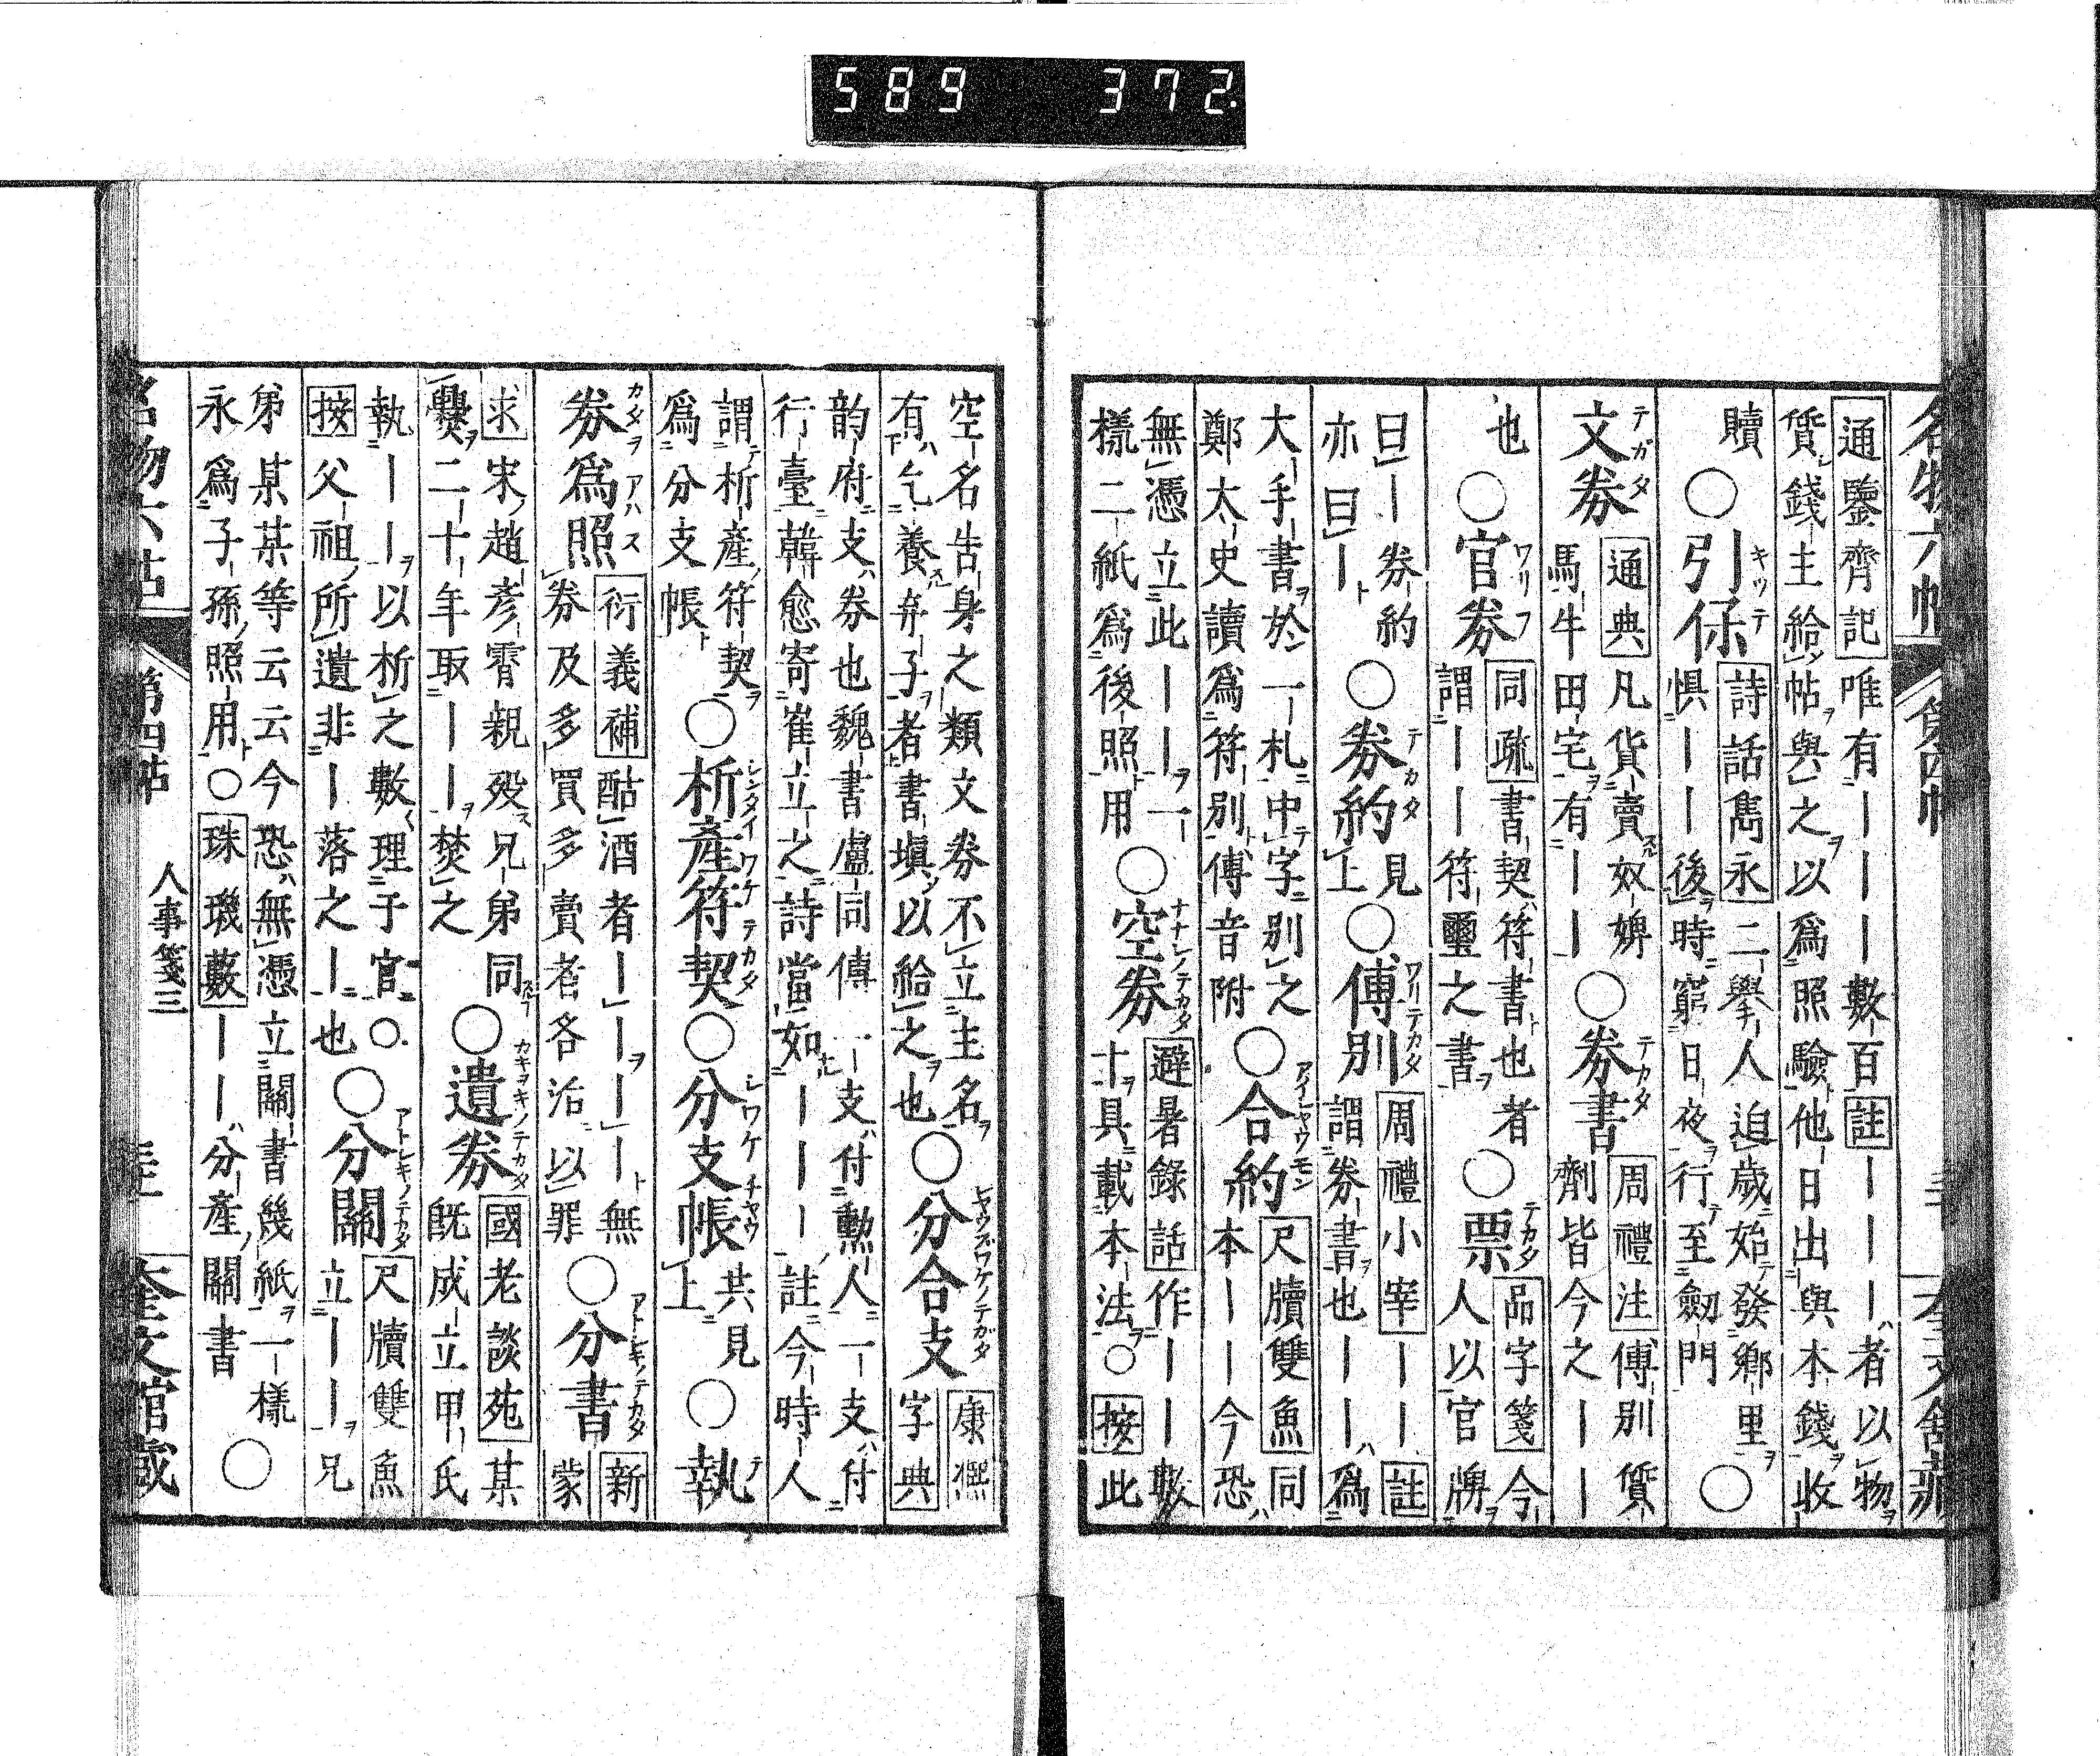 589 372.
通鑒齊記唯有ーーーー數百註ーーーー者以物
貨錢主給帖與之以爲照驗他日出與本錢收
贖○引保詩話雋永二擧人迫歲始發鄉里
懼ーーー後時窮日夜行至劔門○
文券通典凡貨賣奴婢
馬牛田宅有ーー○券書周禮注傅別質
劑皆今之ーー
也○官券同疏書契符書也者
謂ーー符璽之書○票品字箋今
人以官牌
曰ー券約
亦曰ー○券約見
上○傅別周禮小宰ーー註
謂券書也ーー爲
大手書於一札中字別之
鄭太史讀爲符別傅音附○合約尺牘雙魚同
本ーー今恐
無憑立此ーー一
樣二紙爲後照用○空券避暑錄話作ーー數
十具載本法○按此
空名告身之類文券不立主名
有乞養弃子者書塡以給之也○分合支康凞
字典
韵府支券也魏書盧同傳一支付勲人一支付
行臺韓愈寄崔立之詩當如ーーー註今時人
謂析產符契
爲分支帳○析產符契○分支帳共見
上○執
券爲照衍義補酤酒者ーーーー無
券及多買多賣者各治以罪○分書新
蒙
求宋趙彥霄親歿兄弟同
爨二十年取ーー焚之○遺券國老談苑某
旣成立甲氏
執ーー以析之數理于官○
按父祖所遺非ー落之ー也○分關尺牘雙魚
立ーー兄
弟某某等云云今恐無憑立關書幾紙一樣
永爲子孫照用○珠璣藪ーー分產關書○
名物六帖 第四帖 人事箋三 奎文館藏